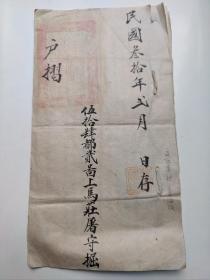 民國叁拾年弍月　日存
伍拾肆都貳啚上馬莊屠守堀
户摺